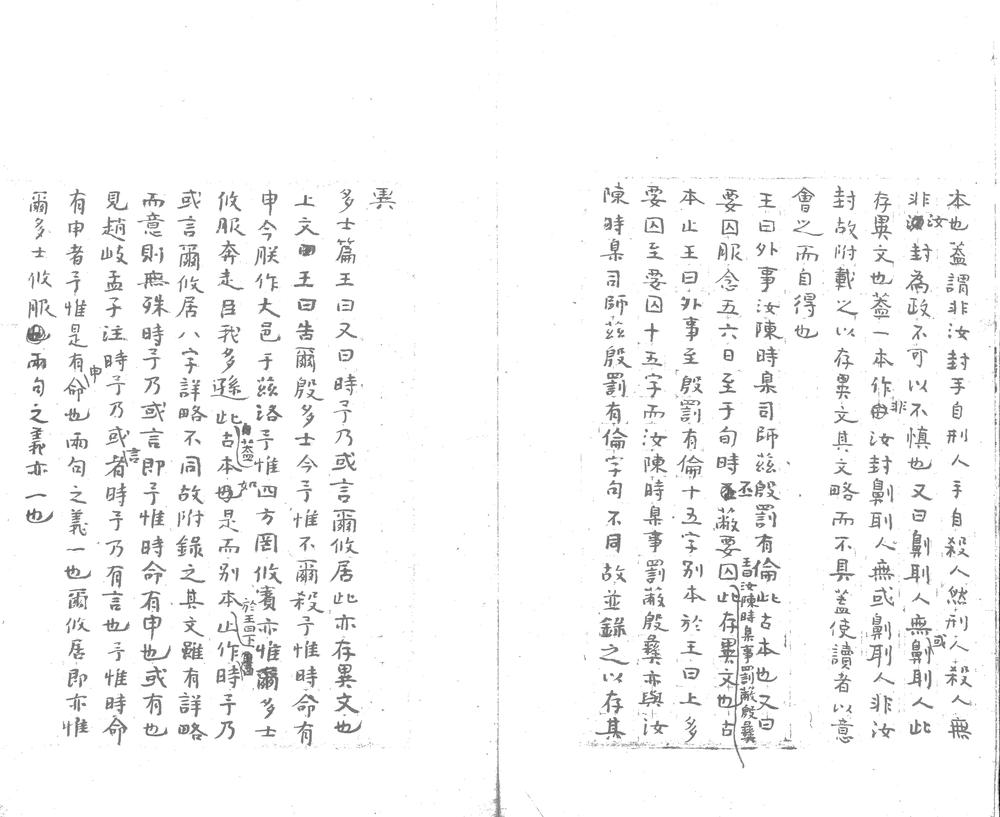 本也蓋謂非汝封手自刑人手自殺人然刑人殺人無
非汝封為政不可以不慎也又曰劓刵人無或劓刵人此
存異文也蓋一本作非汝封劓刵人無或劓刵人非汝
封故附載之以存異文其文略而不具蓋使讀者以意
會之而自得也
王曰外事汝陳時臬司師茲殷罰有倫此古本也又曰
要囚服念五六日至于旬時丕蔽要囚王曰汝陳時臬事罰蔽殷彝此存異文也古
本止王曰外事至殷罰有倫十五字別本於王曰上多
要囚至要囚十五字而汝陳時臬事罰蔽殷彝亦與汝
陳時臬司師茲殷罰有倫字句不同故並錄之以存其
異
多士篇王曰又曰時予乃或言爾攸居此亦存異文也
上文王曰告爾殷多士今予惟不爾殺予惟時命有
申今朕作大邑于茲洛予惟四方罔攸賓亦惟爾多士
攸服奔走臣我多遜此蓋古本如是而別本止作於王曰下時予乃
或言爾攸居八字詳略不同故附錄之其文雖有詳略
而意則無殊時予乃或言即予惟時命有申也或有也
見趙岐孟子注時予乃或言者時予乃有言也予惟時命
有申者予惟是有申命也兩句之義一也爾攸居即亦惟
爾多士攸服兩句之義亦一也